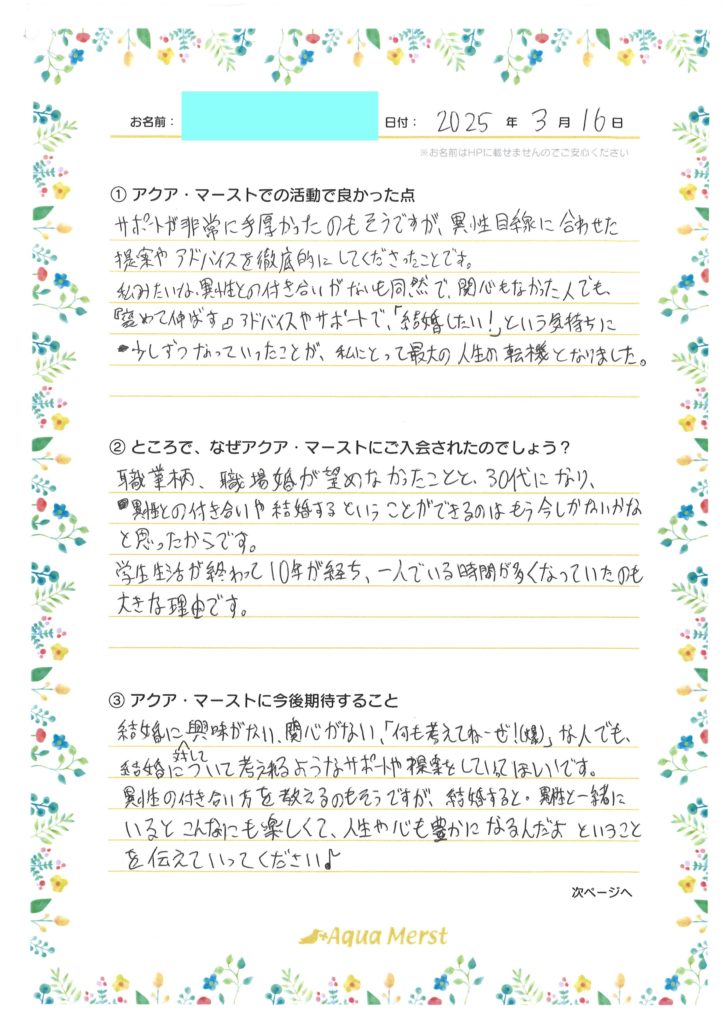 お名前：
日付： 2025 年 3 月 16 日
※お名前はHPに載せませんのでご安心ください
① アクア・マーストでの活動で良かった点
サポートが非常に手厚かったのもそうですが、異性目線に合わせた
提案やアドバイスを徹底的にしてくださったことです。
私みたいな、異性との付き合いがないも同然で、関心もなかった人でも、
『褒めて伸ばす』アドバイスやサポートで、「結婚したい！」という気持ちに
少しずつなっていったことが、私にとって最大の人生の転機となりました。
② ところで、なぜアクア・マーストにご入会されたのでしょう？
職業柄、職場婚が望めなかったことと、30代になり、
異性との付き合いや結婚するということができるのはもう今しかないかな
と思ったからです。
学生生活が終わって10年が経ち、一人でいる時間が多くなっていたのも
大きな理由です。
③ アクア・マーストに今後期待すること
結婚に興味がない、関心がない、「何も考えてねーぜ！(爆)」な人でも、
対して
結婚について考えれるようなサポートや提案をしていってほしいです。
異性の付き合い方を教えるのもそうですが、結婚すると・異性と一緒に
いるとこんなにも楽しくて、人生や心も豊かになるんだよということ
を伝えていってください♪
次ページへ
Aqua Merst